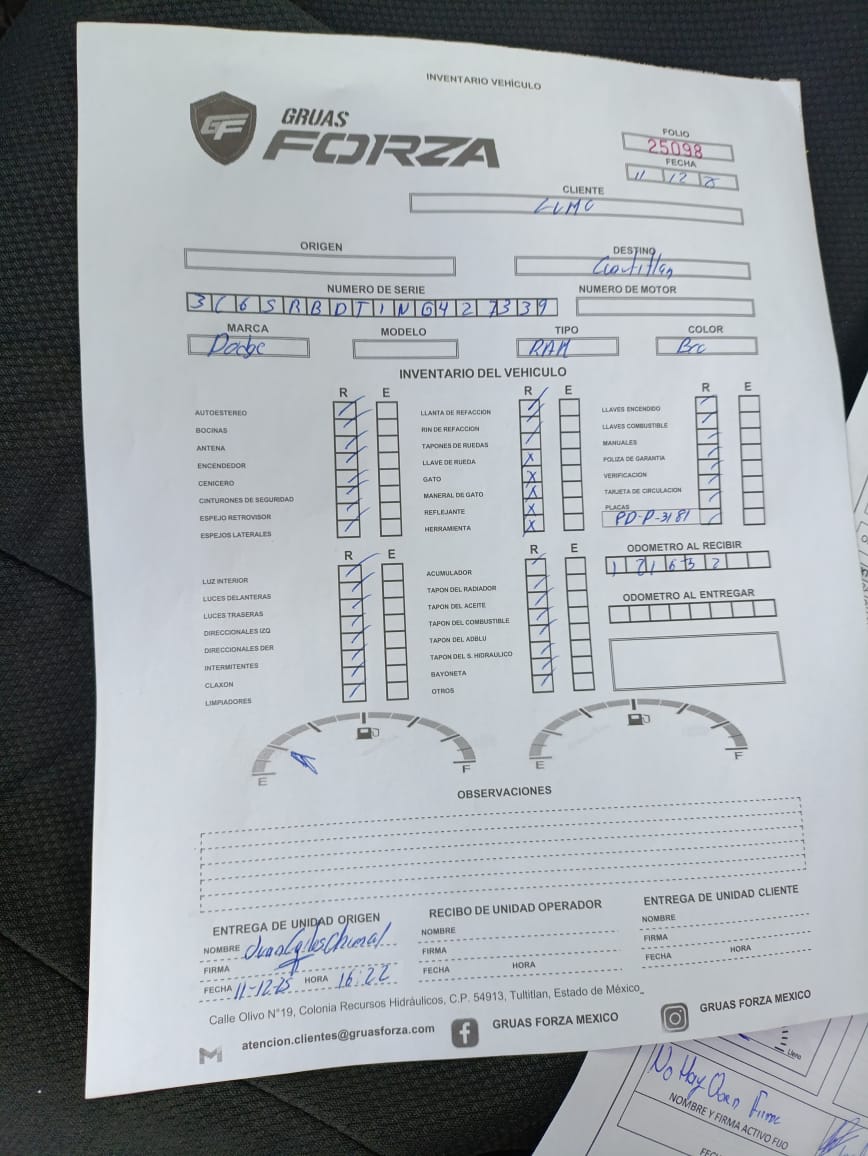 INVENTARIO VEHÍCULO
GF
GRUAS
FORZA
FOLIO
25098
FECHA
11 12
CLIENTE
ORIGEN
DESTINO
NUMERO DE SERIE
NUMERO DE MOTOR
3C6SRBDT1NG427339
MARCA
MODELO
TIPO
COLOR
Dodge
RAM
Bco
INVENTARIO DEL VEHICULO
R E
R E
R E
AUTOESTEREO
BOCINAS
ANTENA
ENCENDEDOR
CENICERO
CINTURONES DE SEGURIDAD
ESPEJO RETROVISOR
ESPEJOS LATERALES
LLANTA DE REFACCION
RIN DE REFACCION
TAPONES DE RUEDAS
LLAVE DE RUEDA
X
GATO
X
MANERAL DE GATO
X
REFLEJANTE
X
HERRAMIENTA
X
LLAVES ENCENDIDO
LLAVES COMBUSTIBLE
MANUALES
POLIZA DE GARANTIA
VERIFICACION
TARJETA DE CIRCULACION
PLACAS
PD-P-3181
R E
R E
ODOMETRO AL RECIBIR
LUZ INTERIOR
LUCES DELANTERAS
LUCES TRASERAS
DIRECCIONALES IZQ
DIRECCIONALES DER
INTERMITENTES
CLAXON
LIMPIADORES
ACUMULADOR
TAPON DEL RADIADOR
TAPON DEL ACEITE
TAPON DEL COMBUSTIBLE
TAPON DEL ADBLU
TAPON DEL S. HIDRAULICO
BAYONETA
OTROS
ODOMETRO AL ENTREGAR
E F
E F
OBSERVACIONES
ENTREGA DE UNIDAD ORIGEN
NOMBRE Juan
FIRMA
FECHA 11-12-25 HORA 16:22
RECIBO DE UNIDAD OPERADOR
NOMBRE
FIRMA
FECHA HORA
ENTREGA DE UNIDAD CLIENTE
NOMBRE
FIRMA
FECHA HORA
Calle Olivo N°19, Colonia Recursos Hidráulicos, C.P. 54913, Tultitlan, Estado de México_
atencion.clientes@gruasforza.com
GRUAS FORZA MEXICO
GRUAS FORZA MEXICO
Lleno
No Hay
NOMBRE Y FIRMA ACTIVO FIJO